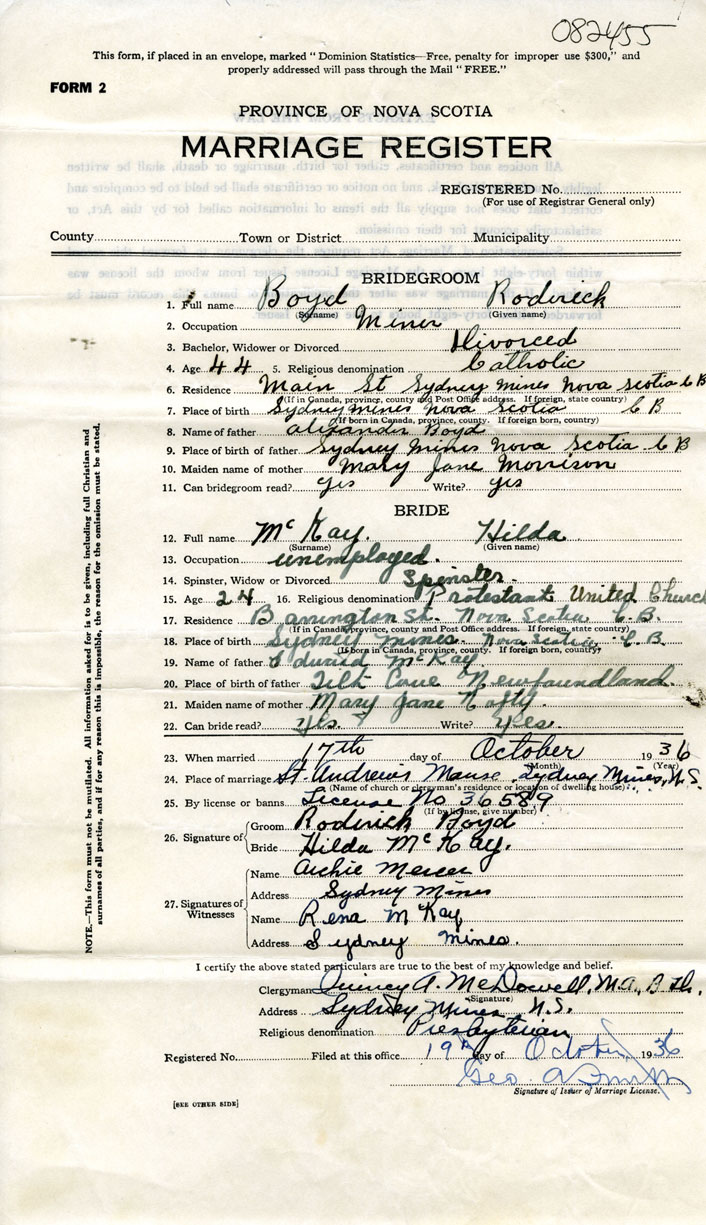 082455
This form, if placed in an envelope, marked "Dominion Statistics—Free, penalty for improper use $300," and
properly addressed will pass through the Mail "FREE."
FORM 2
PROVINCE OF NOVA SCOTIA
MARRIAGE REGISTER
REGISTERED No.
(For use of Registrar General only)
County Town or District Municipality
BRIDEGROOM
1. Full name Boyd Roderick
(Surname) (Given name)
2. Occupation Miner
3. Bachelor, Widower or Divorced Divorced
4. Age 44 5. Religious denomination Catholic
6. Residence Main St Sydney Mines Nova Scotia C B
(If in Canada, province, county and Post Office address. If foreign, state country)
7. Place of birth Sydney Mines Nova Scotia C B
(If born in Canada, province, county. If foreign born, country)
8. Name of father Alexander Boyd
9. Place of birth of father Sydney Mines Nova Scotia C B
10. Maiden name of mother Mary Jane Morrison
11. Can bridegroom read? yes Write? yes
BRIDE
12. Full name McKay. Hilda
(Surname) (Given name)
13. Occupation unemployed.
14. Spinster, Widow or Divorced Spinster.
15. Age 24 16. Religious denomination Protestant United Church
17. Residence Barrington St. Nova Scotia C.B.
(If in Canada, province, county and Post Office address. If foreign, state country)
18. Place of birth Sydney Mines. Nova Scotia. C.B.
(If born in Canada, province, county. If foreign born, country)
19. Name of father Edward McKay.
20. Place of birth of father Tilt Cove Newfoundland.
21. Maiden name of mother Mary Jane
22. Can bride read? Yes. Write? Yes.
23. When married 17th day of October 1936
(Month) (Year)
24. Place of marriage St. Andrew's Manse, Sydney Mines, N.S.
(Name of church or clergyman's residence or location of dwelling house)
25. By license or banns License No 36589
(If by license, give number)
26. Signature of
Groom Roderick Boyd
Bride Hilda McKay.
27. Signatures of Witnesses
Name Archie Mercer
Address Sydney Mines
Name Rena McKay
Address Sydney Mines.
I certify the above stated particulars are true to the best of my knowledge and belief.
Clergyman Quincy A. McDowell, M.A., B.Th.
(Signature)
Address Sydney Mines N.S.
Religious denomination Presbyterian
Registered No. Filed at this office 19th day of October 1936
Geo A Smith
Signature of Issuer of Marriage License.
[SEE OTHER SIDE]
NOTE.—This form must not be mutilated. All information asked for is to be given, including full Christian and
surnames of all parties, and if for any reason this is impossible, the reason for the omission must be stated.